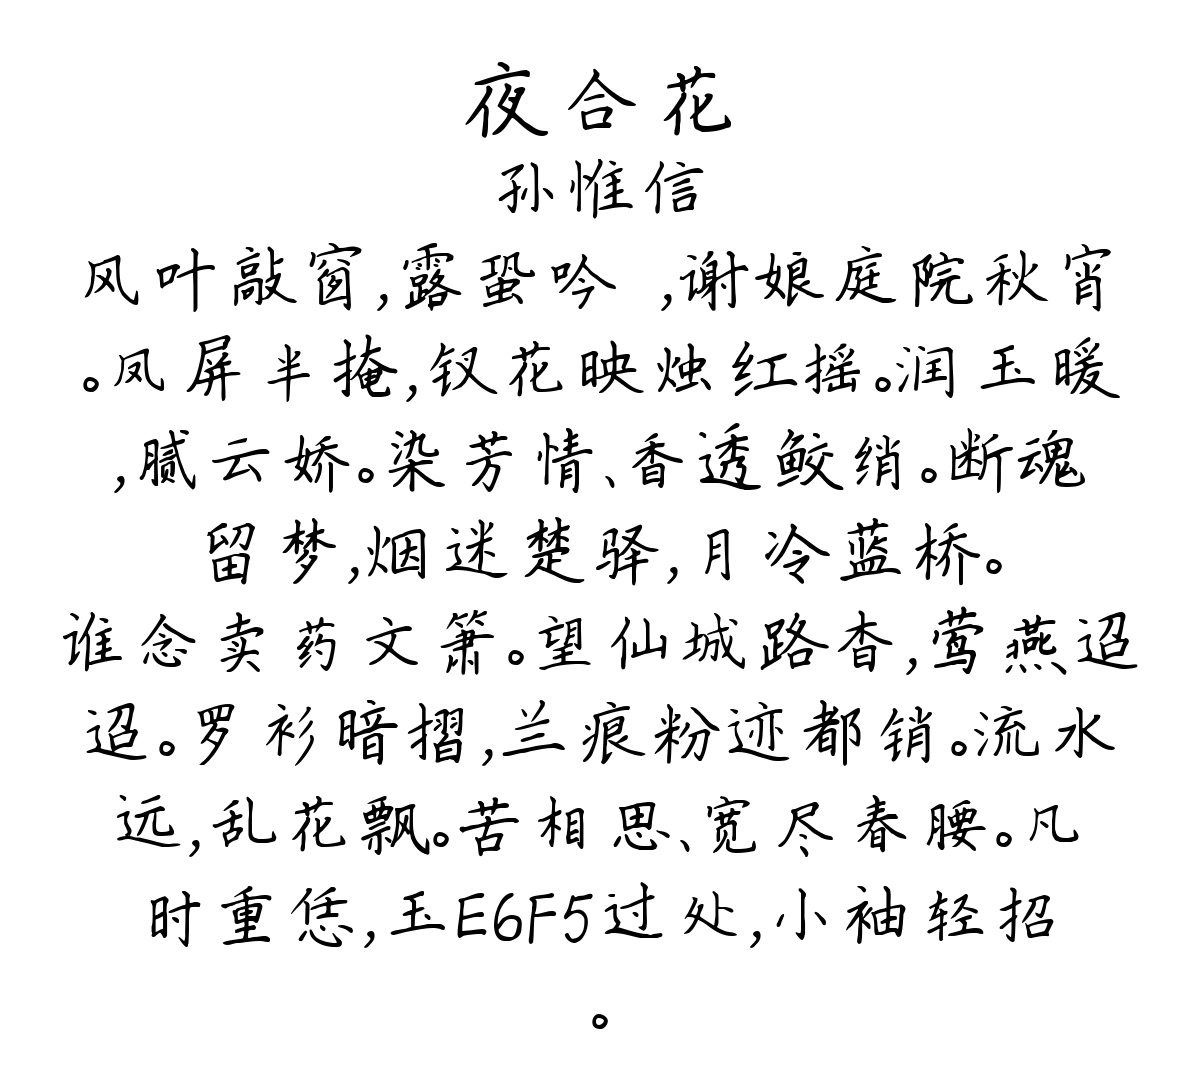 夜合花
孙惟信
风叶敲窗,露蛩吟 ,谢娘庭院秋宵
。凤屏半掩,钗花映烛红摇。润玉暖
,腻云娇。染芳情、香透鲛绡。断魂
留梦,烟迷楚驿,月冷蓝桥。
谁念卖药文箫。望仙城路杳,莺燕迢
迢。罗衫暗摺,兰痕粉迹都销。流水
远,乱花飘。苦相思、宽尽春腰。几
时重恁,玉E6F5过处,小袖轻招
。